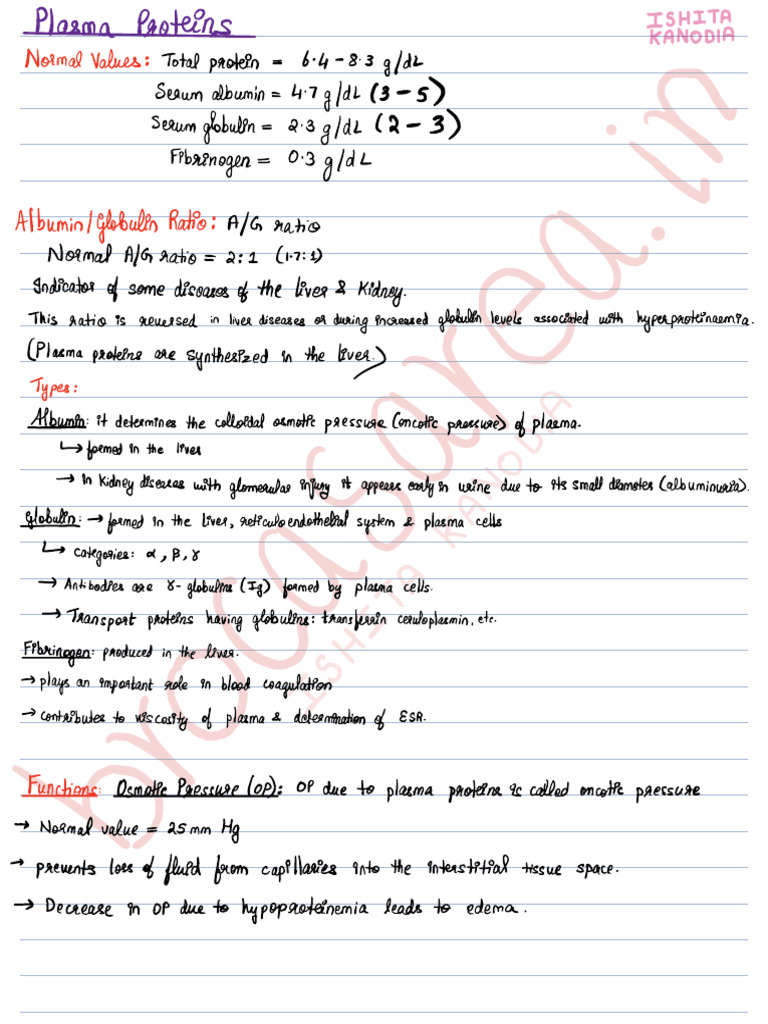 Plasma Proteins
ISHITA
KANODIA
Normal Values: Total protein = 6.4 - 8.3 g/dL
Serum albumin = 4.7 g/dL (3 - 5)
Serum globulin = 2.3 g/dL (2 - 3)
Fibrinogen = 0.3 g/dL
Albumin/Globulin Ratio: A/G ratio
Normal A/G ratio = 2:1 (1.7:1)
Indicator of some diseases of the liver & kidney.
This ratio is reversed in liver diseases or during increased globulin levels associated with hyperproteinaemia.
(Plasma proteins are synthesized in the liver.)
Types:
Albumin: it determines the colloidal osmotic pressure (oncotic pressure) of plasma.
↳ formed in the liver
→ in kidney diseases with glomerular injury it appears early in urine due to its small diameter (albuminuria).
Globulin: → formed in the liver, reticuloendothelial system & plasma cells
↳ categories: α, β, γ
→ Antibodies are γ- globulins (Ig) formed by plasma cells.
→ Transport proteins having globulins: transferrin ceruloplasmin, etc.
Fibrinogen: produced in the liver.
→ plays an important role in blood coagulation
→ contributes to viscosity of plasma & determination of ESR.
Functions: Osmotic Pressure (OP): OP due to plasma proteins is called oncotic pressure
→ Normal value = 25 mm Hg
→ prevents loss of fluid from capillaries into the interstitial tissue space.
→ Decrease in OP due to hypoproteinemia leads to edema.
brocasarea.in
ISHITA KANODIA